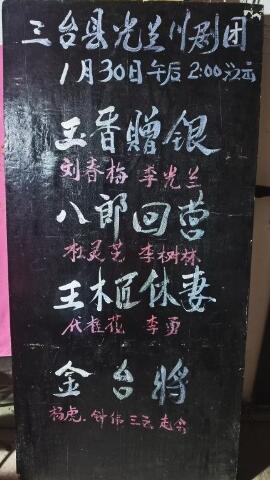 三台县光兰川剧团
1月30日午后2:00演
王香赠银
刘春梅 李光兰
八郎回营
杜灵芝 李树林
王木匠休妻
代桂花 李勇
金台将
杨虎. 钟伟